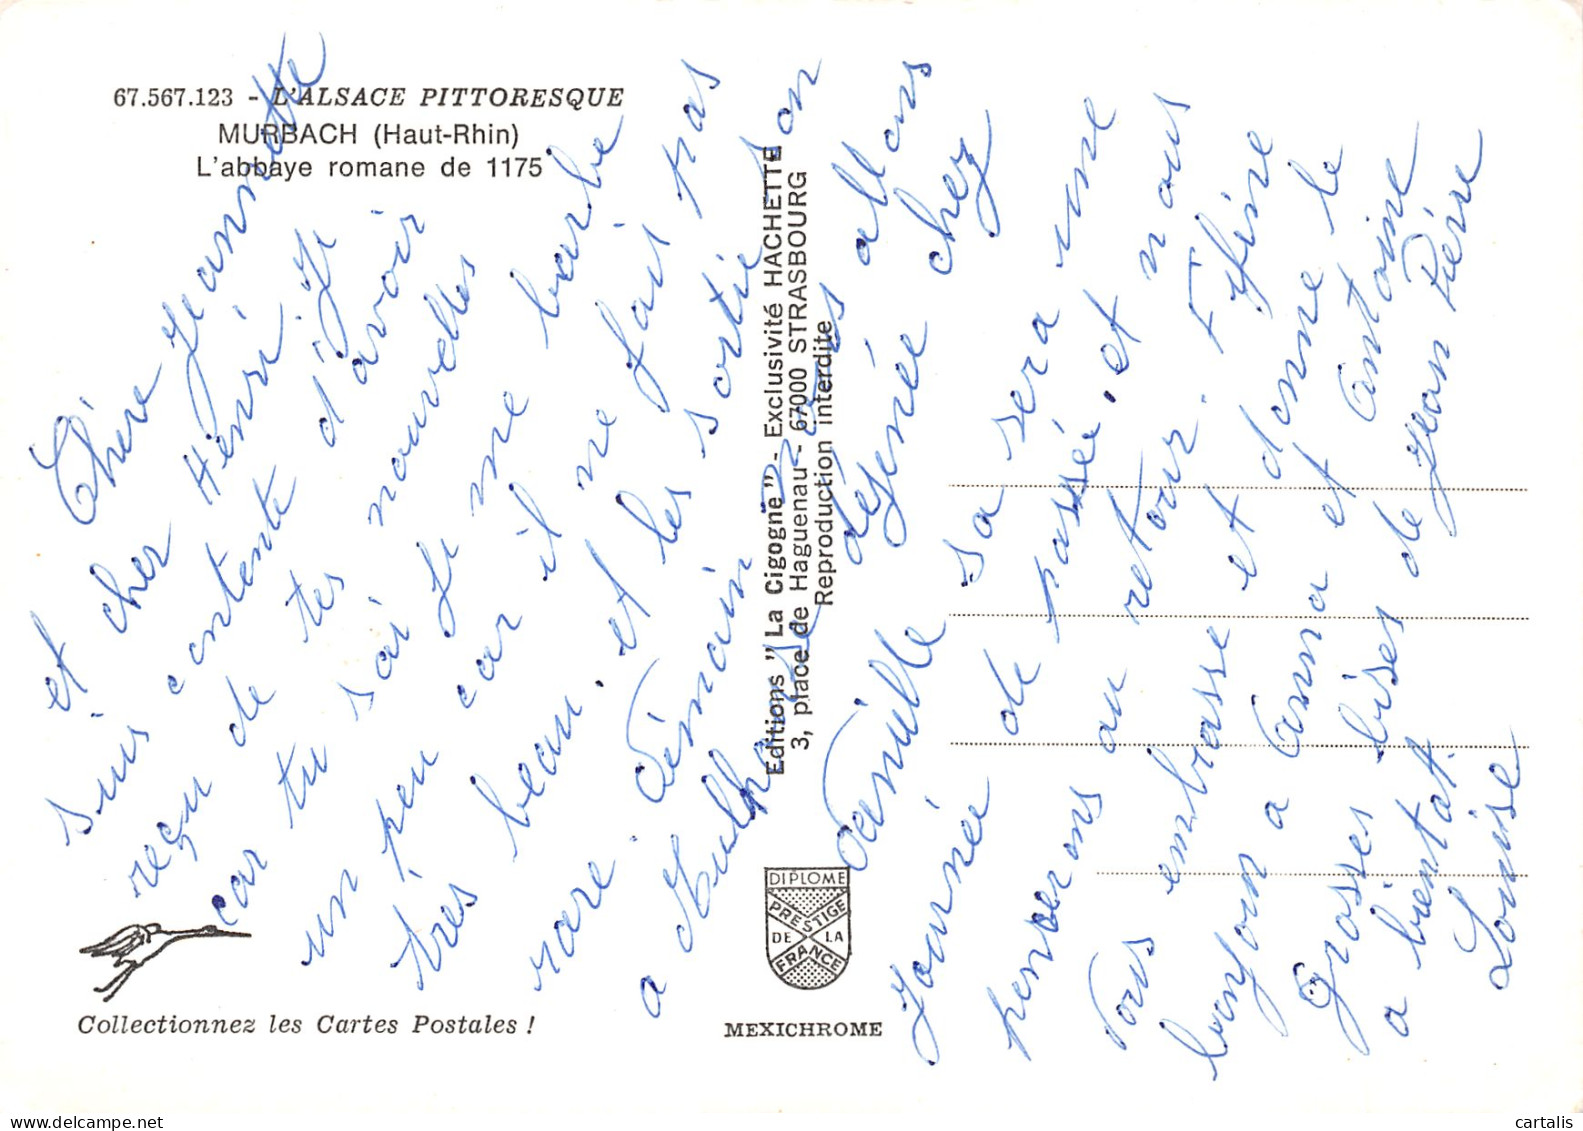 67.567.123 - L'ALSACE PITTORESQUE
MURBACH (Haut-Rhin)
L'abbaye romane de 1175
Chère Jeannette
et cher Henri. Je
suis contente d'avoir
reçu de tes nouvelles
car tu sai je me barbe
un peu car il ne fait pas
très beau. et les sortie son
rare. Démain nous allons
a Mulhouse déjeunée chez
Camille sa sera une
Journée de passée. et nous
penserons au retour. Fifine
Vous embrasse et donne le
bonjour a Anna et Antoine
Grosses bises de Jean Piérre
a bientot.
Louise
Editions "La Cigogne" - Exclusivité HACHETTE
3, place de Haguenau - 67000 STRASBOURG
Reproduction interdite
DIPLOME
PRESTIGE
DE LA
FRANCE
Collectionnez les Cartes Postales !
MEXICHROME
https://www.delcampe.net
cartalis